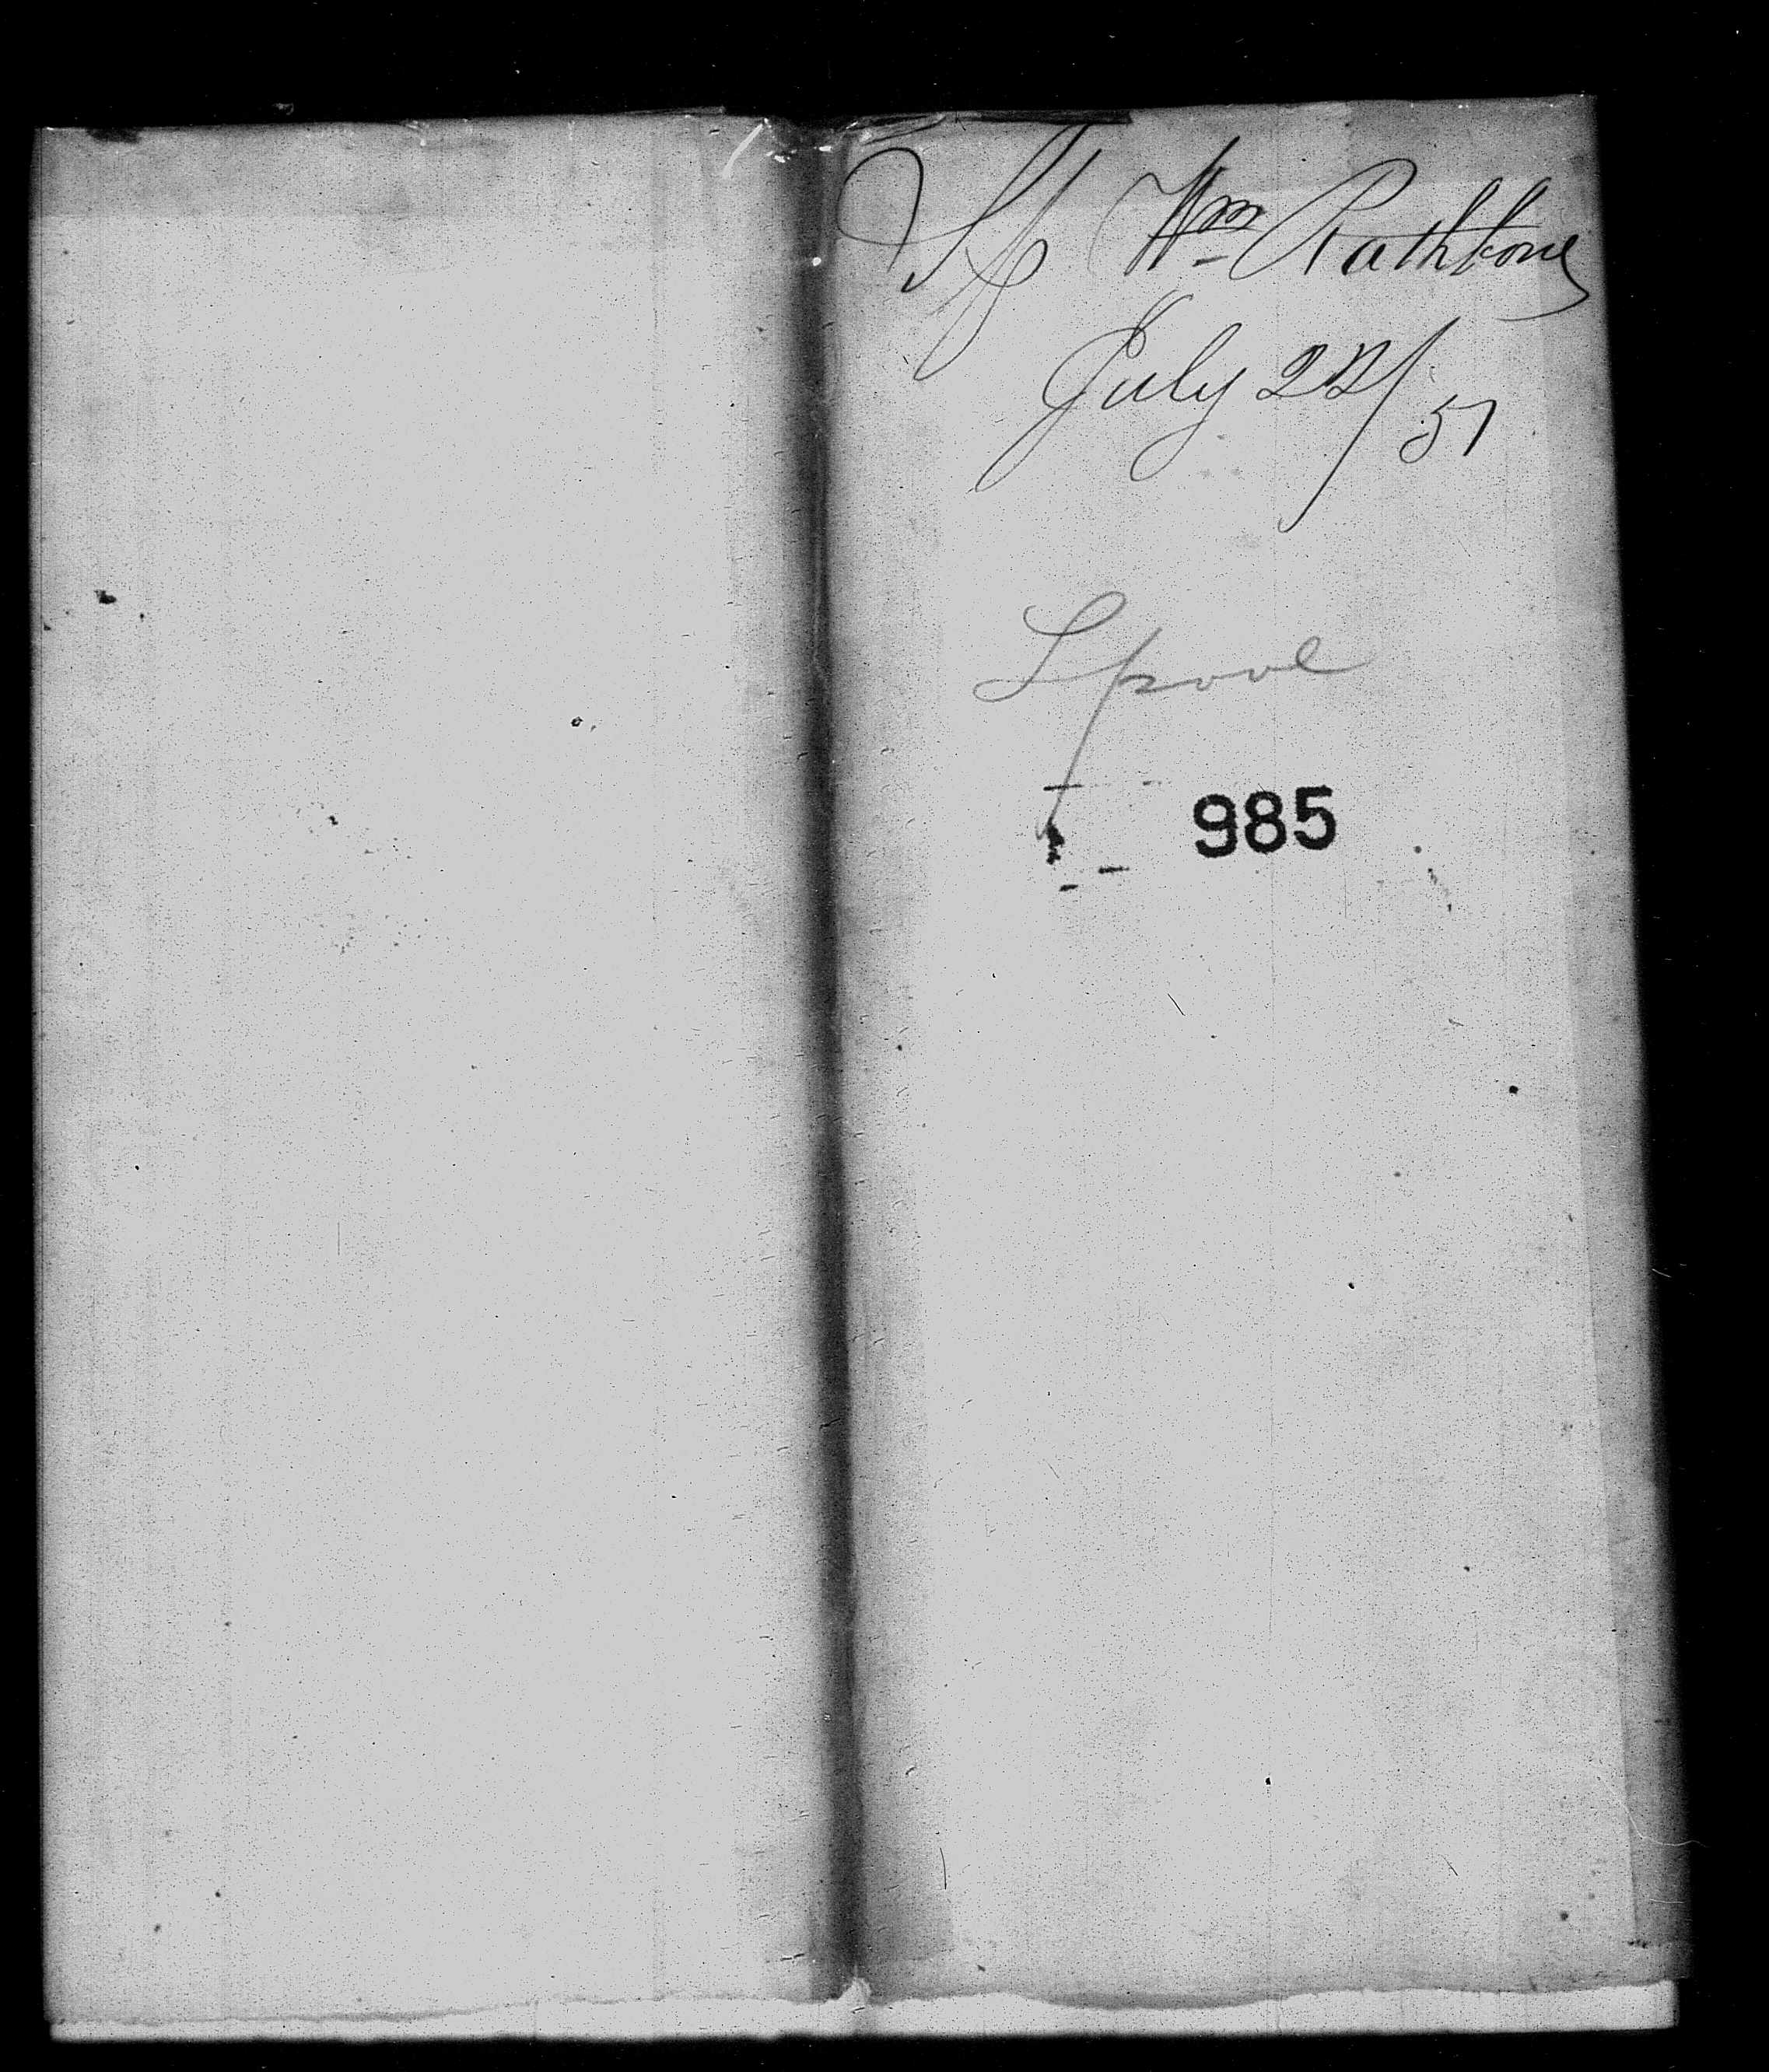 Sf Wm Rathbone
July 22/57
Lpool
985